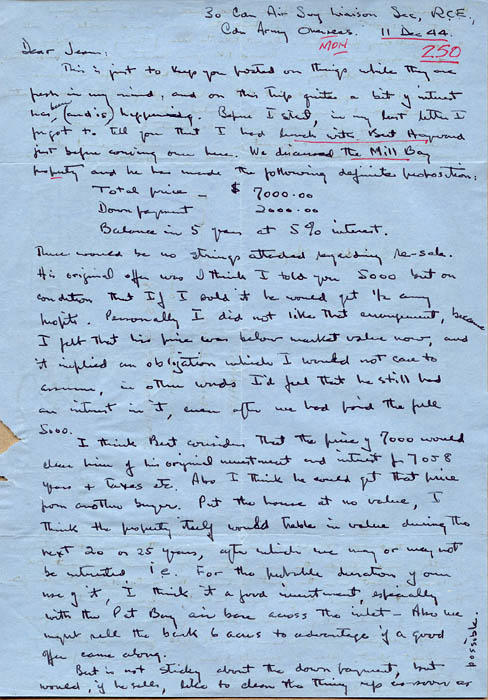 30 Cdn Air Svy Liaison Sec, RCE,
Cdn Army Overseas. 11 Dec 44.
MON
250
Dear Jean:
This is just to keep you posted on things while they are
fresh in my mind, and on this trip quite a bit of interest
has been (and is) happening. Before I start, in my last letter I
forgot to tell you that I had lunch with Bert Hayward
just before coming over here. We discussed the Mill Bay
property and he has made the following definite proposition:
Total price - $ 7000.00
Down payment 2000.00
Balance in 5 years at 5% interest.
There would be no strings attached regarding re-sale.
His original offer was I think I told you 5000 but on
condition that If I sold it he would get 1/2 any
profits. Personally I did not like that arrangement, because
I felt that his price was below market value now, and
it implied an obligation which I would not care to
assume, in other words I'd feel that he still had
an interest in it, even after we had paid the full
5000.
I think Bert considers that the price of 7000 would
clear him of his original investment and interest for 7 or 8
years + taxes etc. Also I think he could get that price
from another buyer. Put the house at no value, I
think the property itself would treble in value during the
next 20 or 25 years, after which we may or may not
be interested i.e. For the probable duration of our
use of it, I think it a good investment, especially
with the Pat Bay air base across the inlet - Also we
might sell the back 6 acres to advantage if a good
offer came along.
possible.
Bert is not sticky about the down payment, but
would, if he sells, like to clean the thing up as soon as